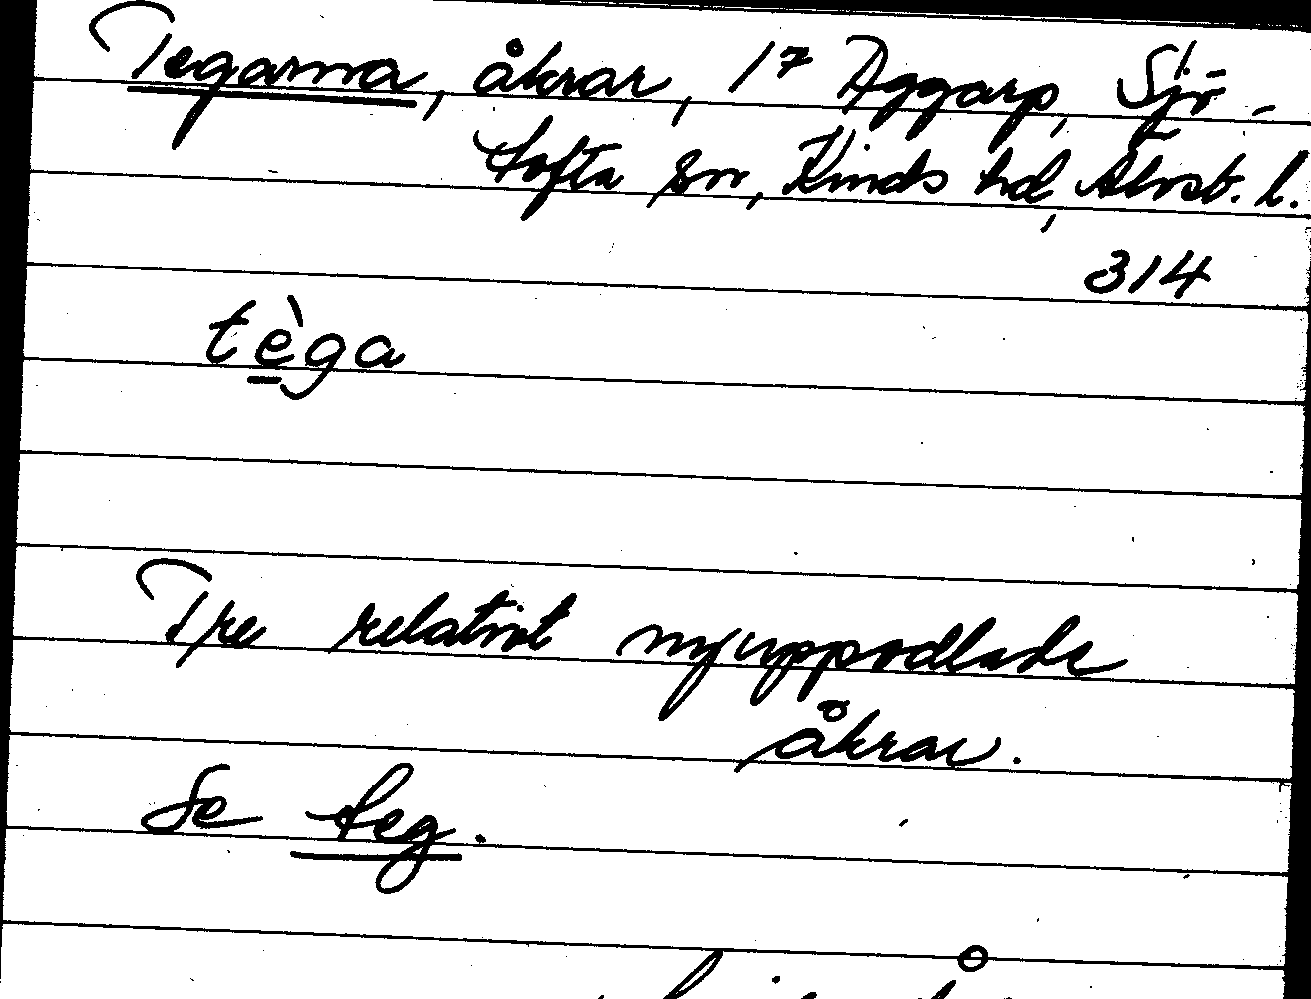 Tegarna, åkrar, 17 Aggarp, Sjö-
tofta sn, Kinds hd, Älvsb. l.
314
tèga
Tre relativt nyuppodlade
åkrar.
Se teg.